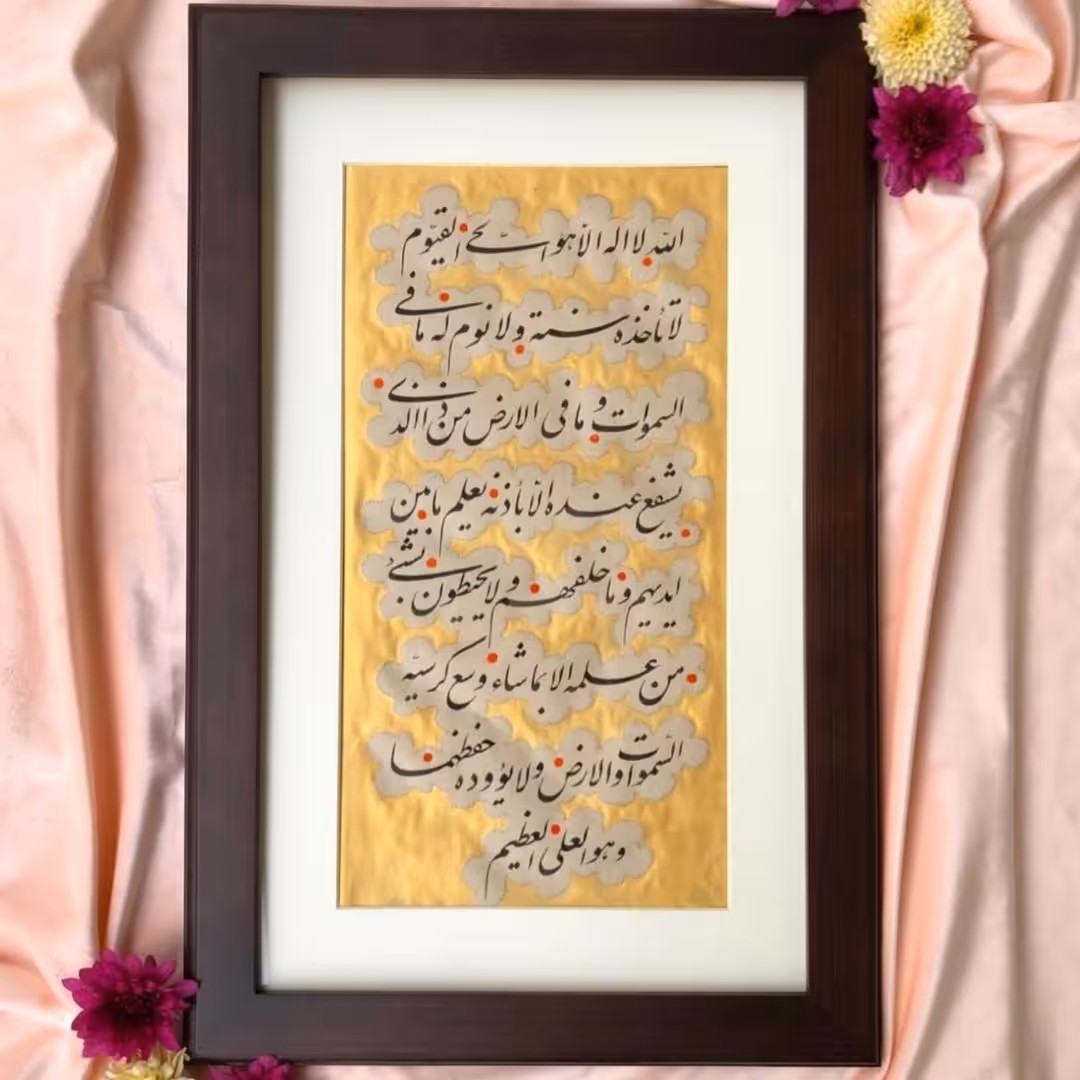 الله لا اله الا هو الحی القیّوم
لا تأخذه سنة ولا نوم له ما فی
السموات و ما فی الارض من ذا الذی
یشفع عنده الا بأذنه یعلم ما بین
ایدیهم و ما خلفهم و لا یحیطون بشیء
من علمه الا بما شاء وسع کرسیّه
السموات والارض ولا یؤوده حفظهما
وهو العلی العظیم